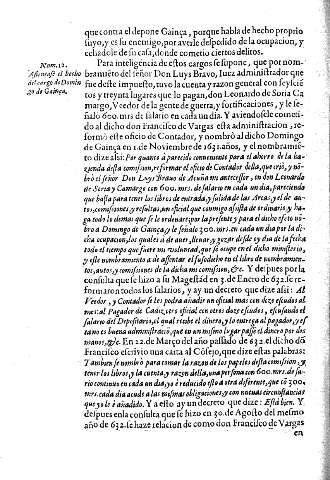 que contra el depone Gainça, porque habla de hecho proprio
suyo, y es su enemigo, por averle despedido de la ocupacion, y
echadole de su casa, donde cometio ciertos delitos.
Num. 12.
Assientase el hecho
del cargo de Domin
go de Gainça.
Para inteligencia de estos cargos se supone, que por nom-
bramiẽto del señor Don Luys Bravo, Iuez administrador que
fue deste impuesto, tuvo la cuenta y razon general con seyscië
tos y treynta lugares que lo pagan, don Leonardo de Soria Ca
margo, Veedor de la gente de guerra, y fortificaciones, y le se-
ñalò 600. mrs de salario en cada un dia. Y aviendosele cometi
do al dicho don Francisco de Vargas esta administracion, re-
formò este oficio de Contador, y nombrò al dicho Domingo
de Gainça en 1. de Noviembre de 1631. años, y el nombramien-
to dize assi: Por quanto à parecido conveniente para el ahorro de la ha-
zienda desta comission, reformar el oficio de Contador della, que criò, y nõ-
brò el señor Don Luys Bravo de Acuña mi antecessor, en don Leonardo
de Soria y Camargo con 600. mrs. de salario en cada un dia, pareciendo
que basta para tener los libros de entrada, y salida de las arcas, y el de au-
tos, comissiones, y resultas, un oficial que conmigo assista de ordinario, y ha-
ga todo lo demas que se le ordenare, por la presente y para el dicho efeto nõ-
bro à Domingo de Gainça, y le señalo 300. mrs. en cada un dia por la di-
cha ocupacion, los quales à de aver, llevar, y gozar desde oy dia de la fecha
todo el tiempo que fuere mi voluntad, que se ocupe en el dicho ministerio,
y este nombramiento se à de assentar el susodicho en el libro de nombramien-
tos, autos, y comissiones de la dicha mi comission, &c. Y despues por la
consulta que se hizo a su Magestad en 3. de Enero de 632. se re-
formaron todos los salarios, y ay un decreto que dize assi: Al
Veedor, y Contador se les podra añadir un oficial mas con diez escudos al
mes: al Pagador de Cadiz, con otros diez escudos, escusando el
salario del Depositario, al qual recibe el dinero, y lo entrega al pagador, y es
tamos es buena administraciõ, que en un mesmo lugar passe el dinero por dos
manos, &c. En 22. de Março del año passado de 632. el dicho dõ
Francisco escrivio una carta al Cõsejo, que dize estas palabras:
Tambien se nombrò para tomar la razon de los papeles desta comission, y
tener los libros, y la cuenta y razon della, una persona con 600. mrs. de sala-
rio continuos en cada un dia, yo è reducido esto a otra diferente, que cõ 300.
mrs. cada dia acuda a las mismas obligaciones y con nuevas circunstancias
que yo le è añadido. Y a esto ay un decreto que dize: Està bien. Y
despues en la consulta que se hizo en 30. de Agosto del mesmo
año de 632. se haze relacion de como don Francisco de Vargas
en